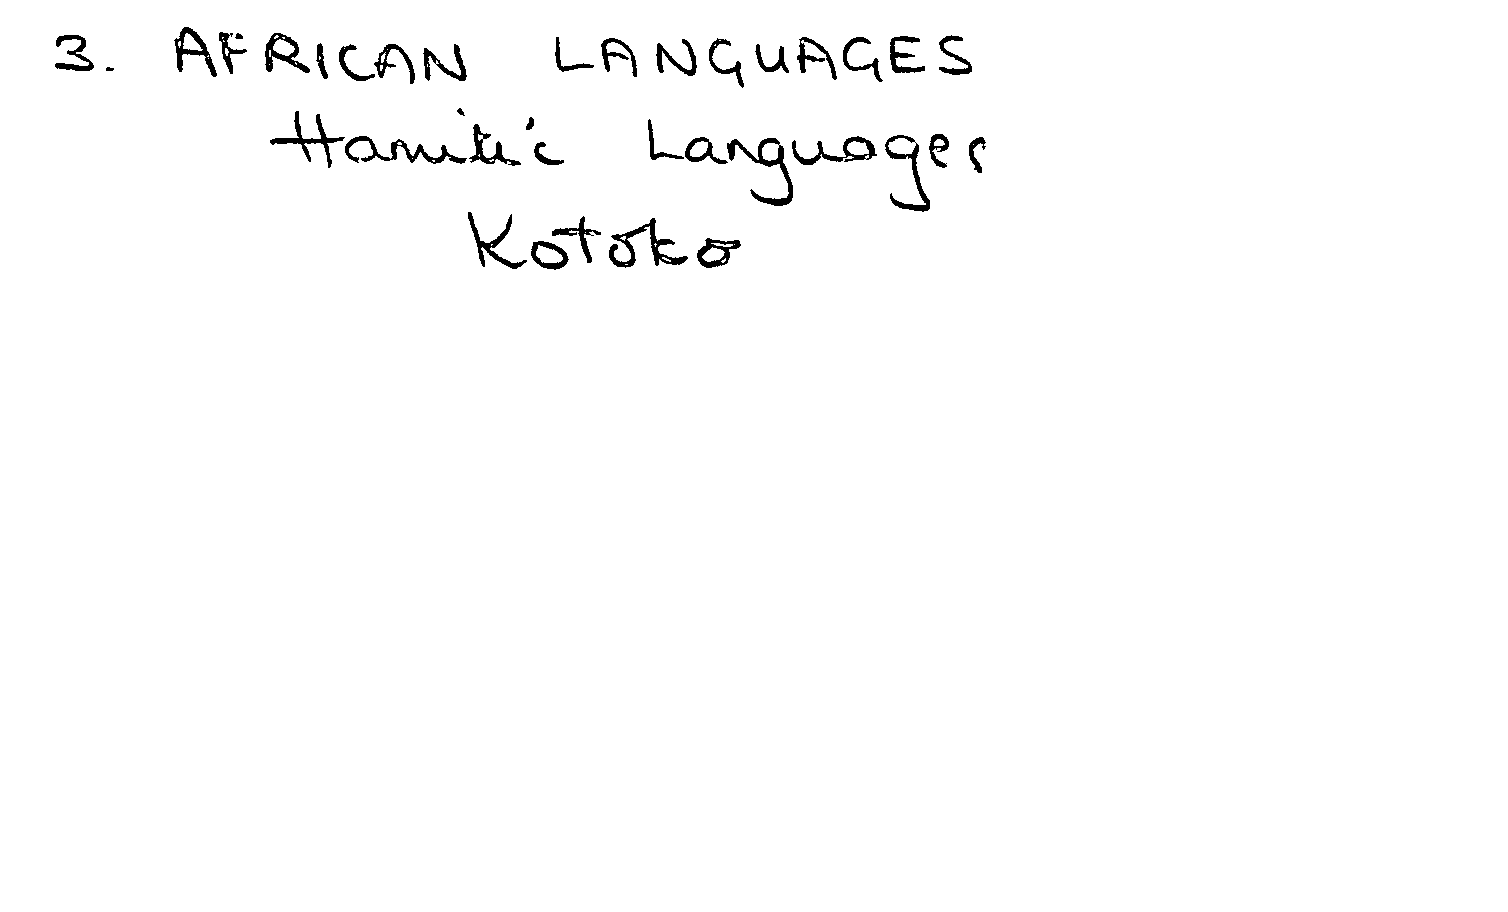 3. AFRICAN LANGUAGES
Hamitic Languages
Kotoko